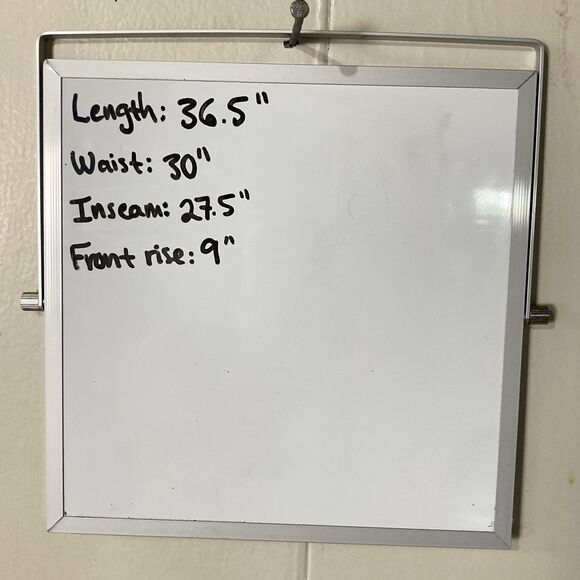 Length: 36.5"
Waist: 30"
Inseam: 27.5"
Front rise: 9"